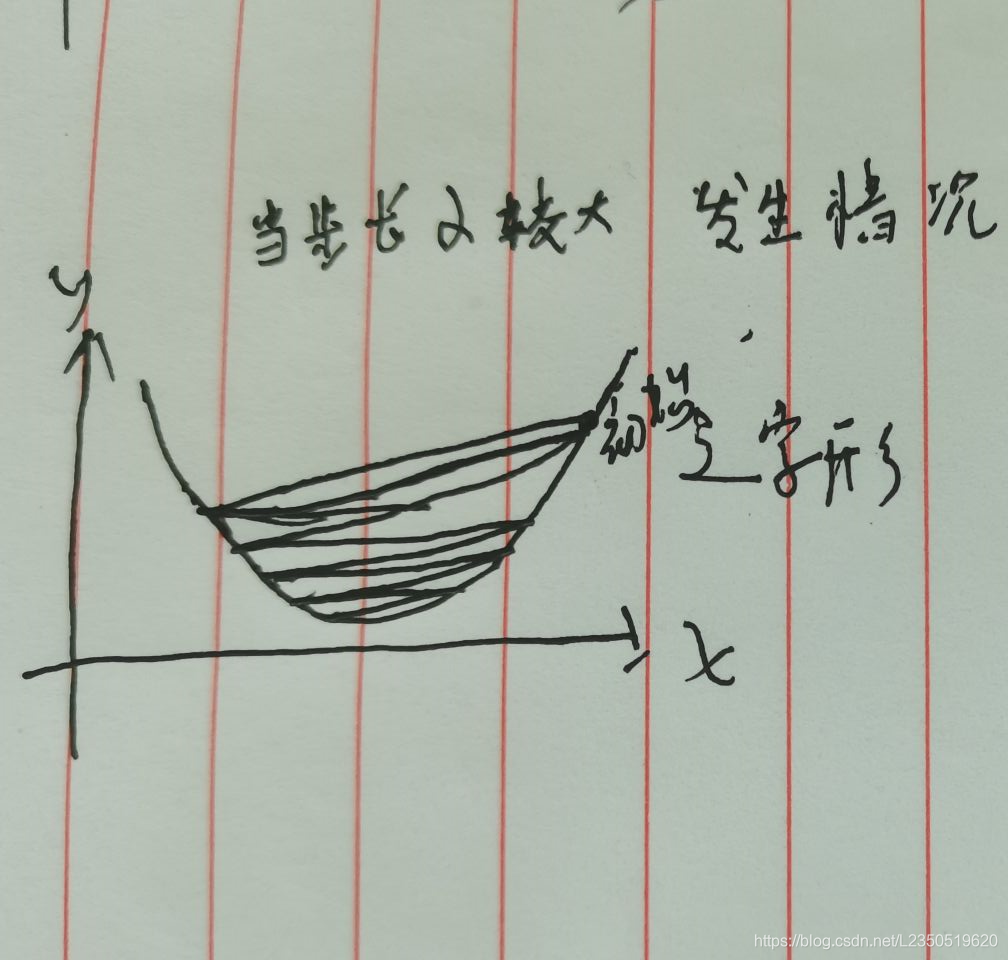 当步长λ较大 发生情况
y
初始
之字形
x
https://blog.csdn.net/L2350519620